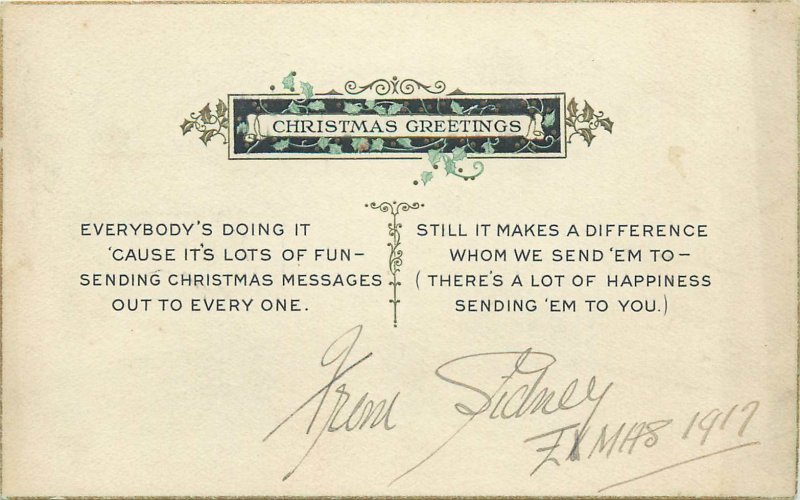 CHRISTMAS GREETINGS
EVERYBODY'S DOING IT
'CAUSE IT'S LOTS OF FUN—
SENDING CHRISTMAS MESSAGES
OUT TO EVERY ONE.
STILL IT MAKES A DIFFERENCE
WHOM WE SEND 'EM TO—
(THERE'S A LOT OF HAPPINESS
SENDING 'EM TO YOU.)
From Sidney
XMAS 1917